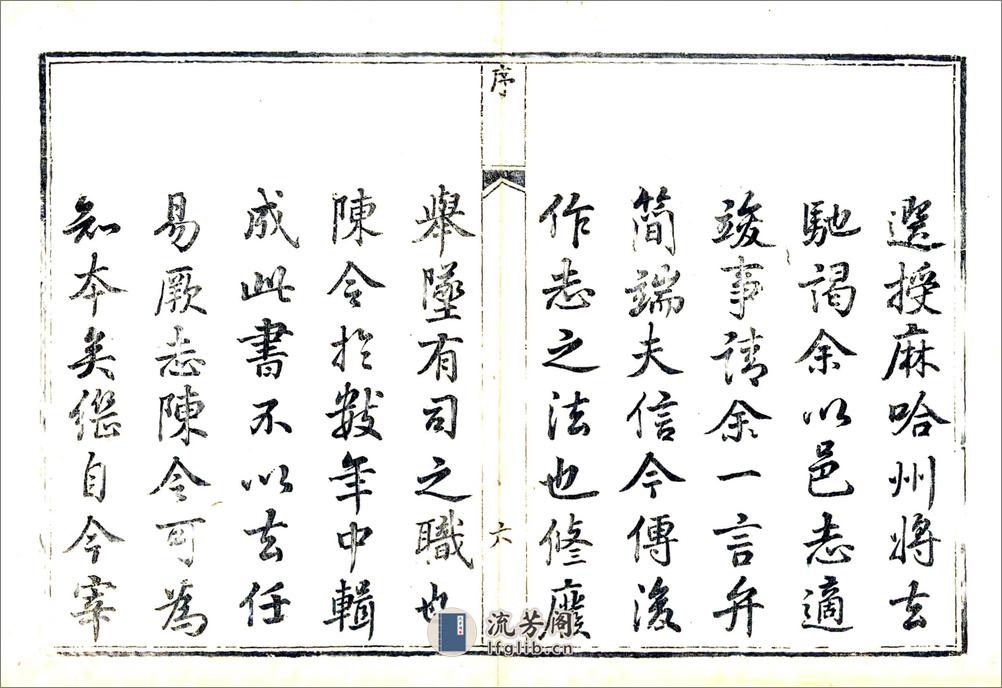 選授麻哈州將去
馳謁余以邑志適
竣事請余一言弁
簡端夫信今傳後
作志之法也修廢
序
六
舉墜有司之職也
陳令於數年中輯
成此書不以去任
易厥志陳令可為
知本矣繼自今宰
流芳閣
lfglib.cn